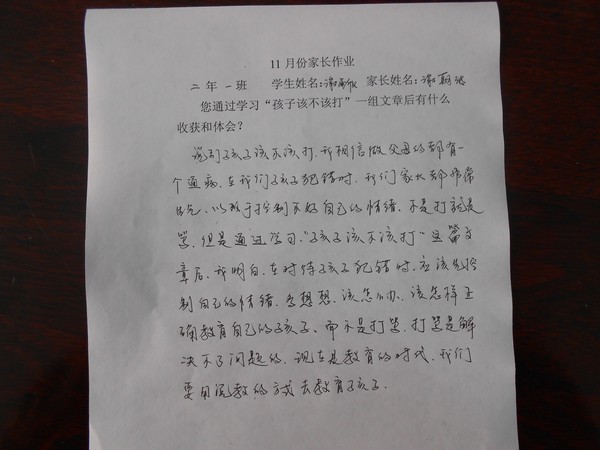 11月份家长作业
二年一班 学生姓名: 家长姓名:谢
您通过学习“孩子该不该打”一组文章后有什么
收获和体会？
说到孩子该不该打，我相信做父母的都有一
个通病，在我们孩子犯错时，我们家长都
以至于控制不好自己的情绪，不是打就是
骂，但是通过学习，“孩子该不该打”这篇文
章后，我明白，在对待孩子犯错时，应该先控
制自己的情绪，多想想，该怎么办，该怎样正
确教育自己的孩子、而不是打骂，打骂是解
决不了问题的，现在是教育的时代，我们
要用 教的方式去教育孩子。